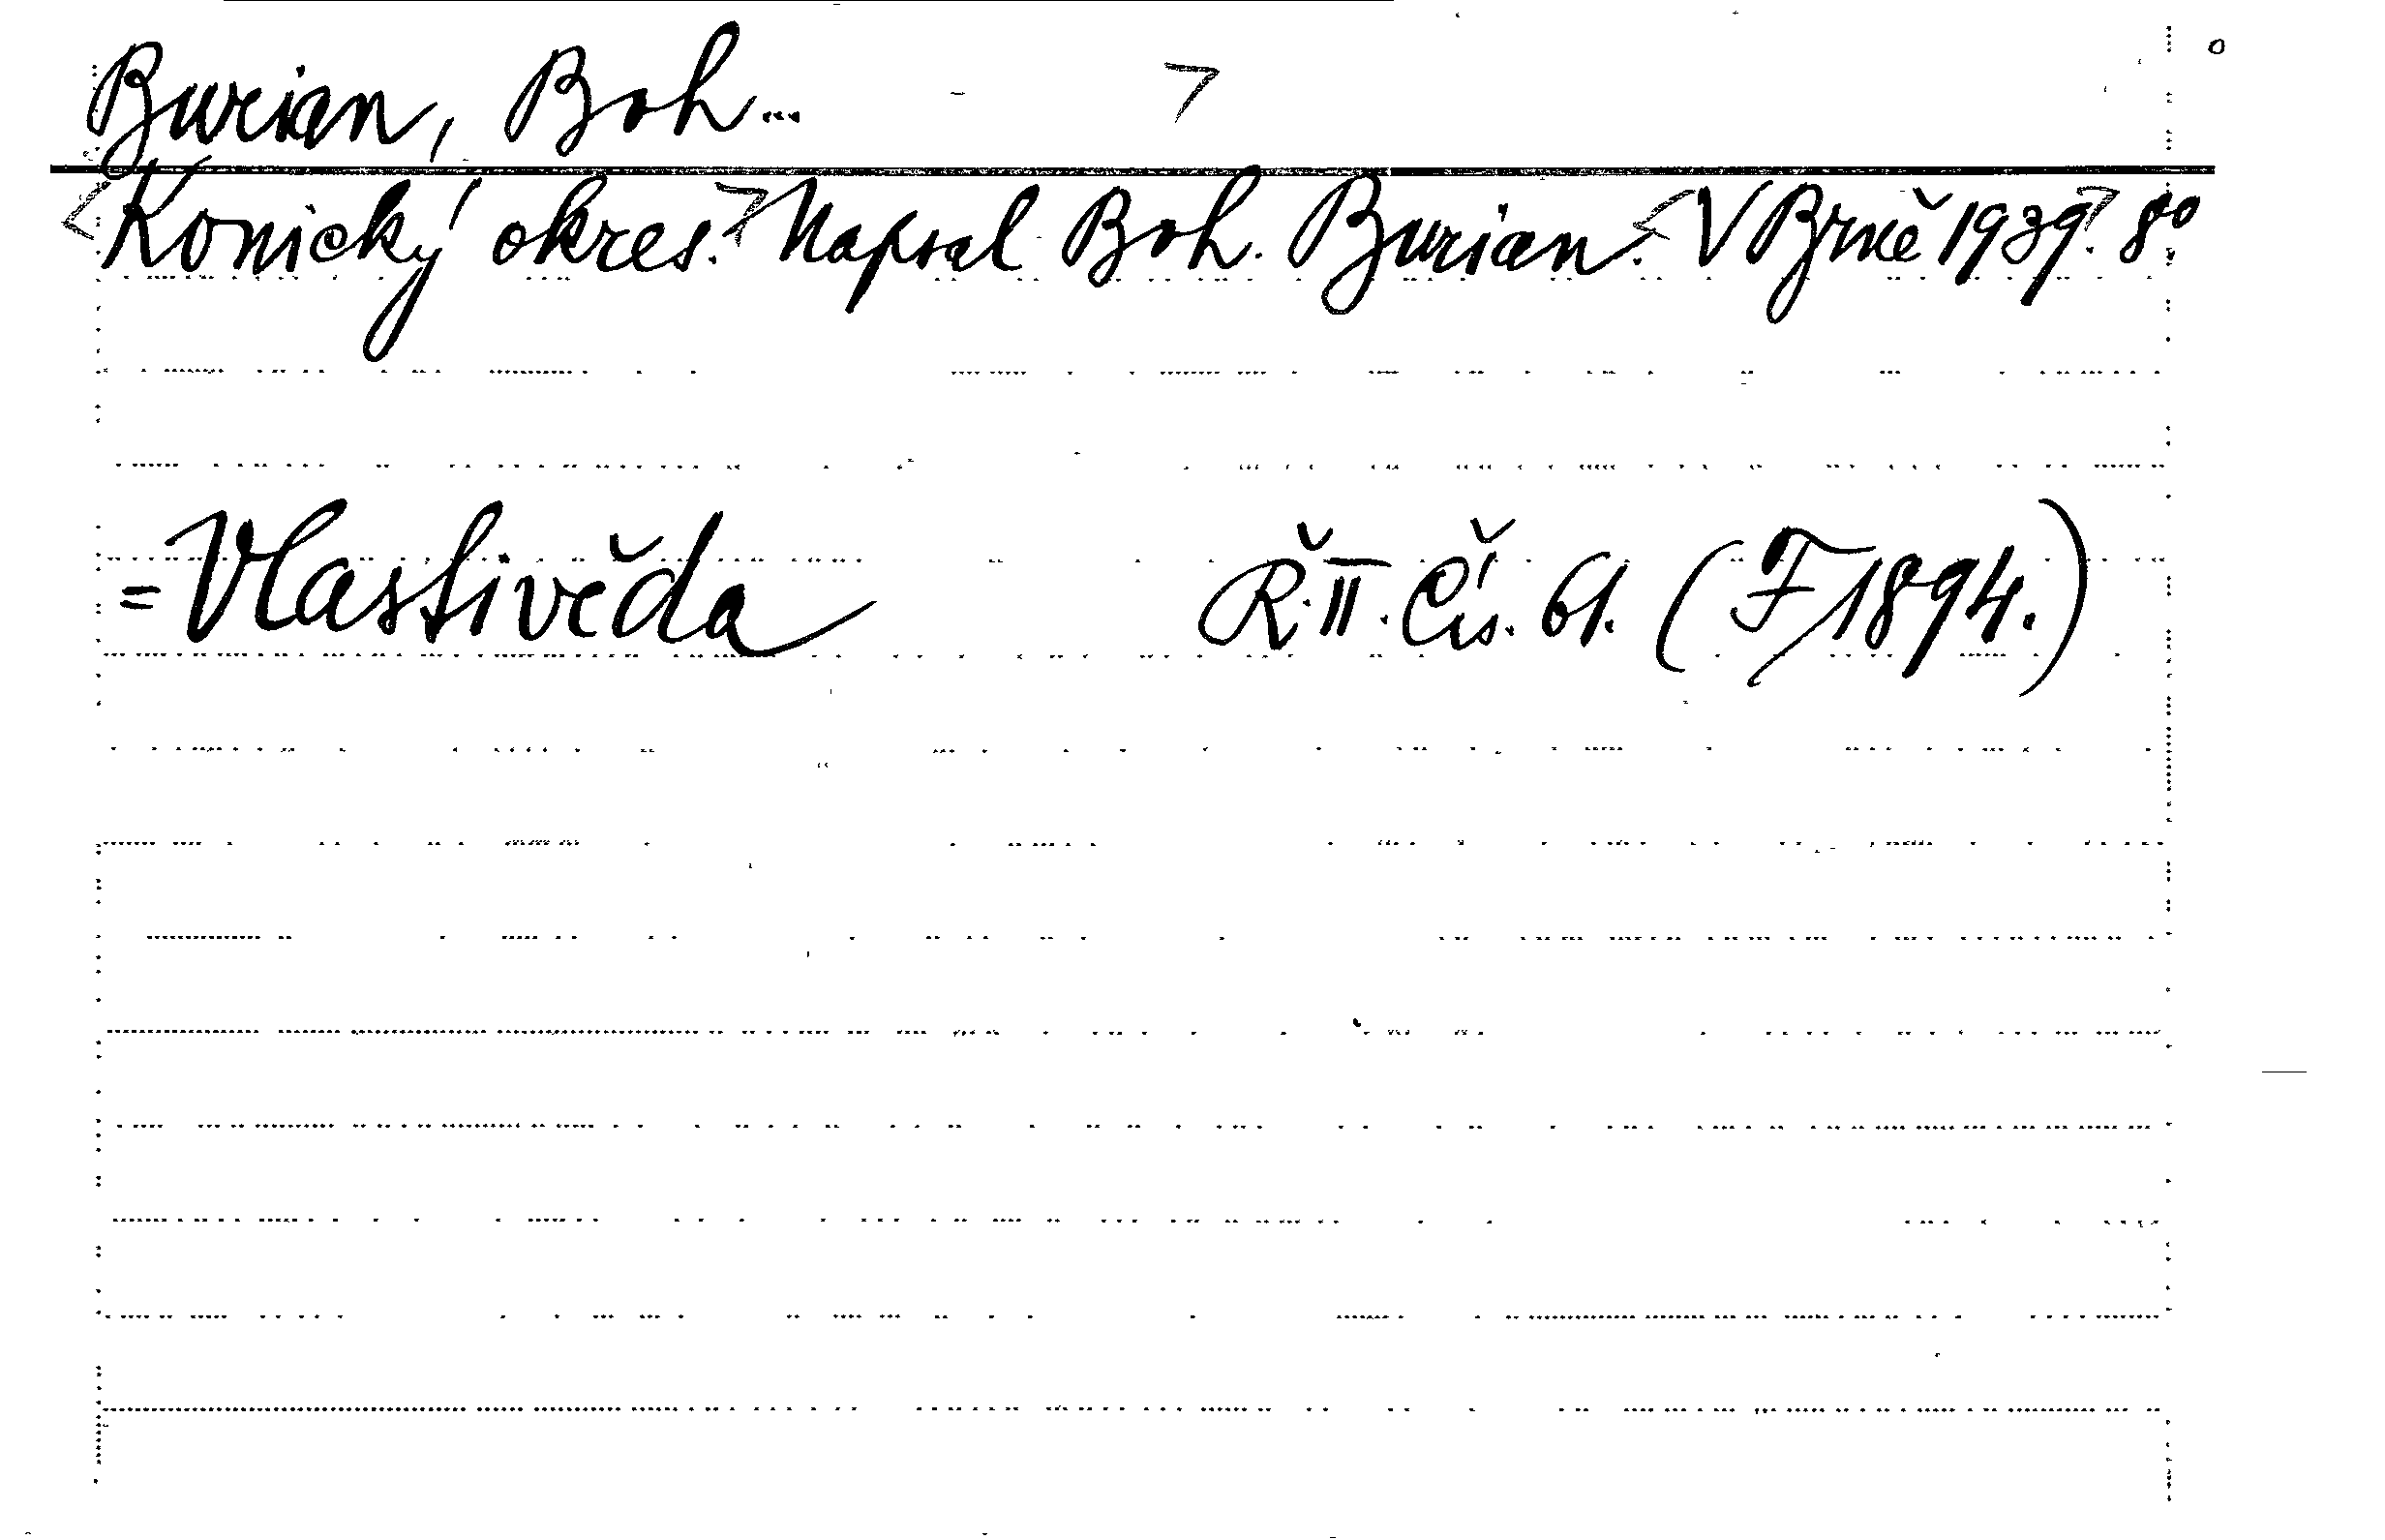 Burian, Boh...
Konický okres. Napsal Boh. Burian. V Brně 1939. 8°
= Vlastivěda Ř. II. Čís. 61. (F 1894.)